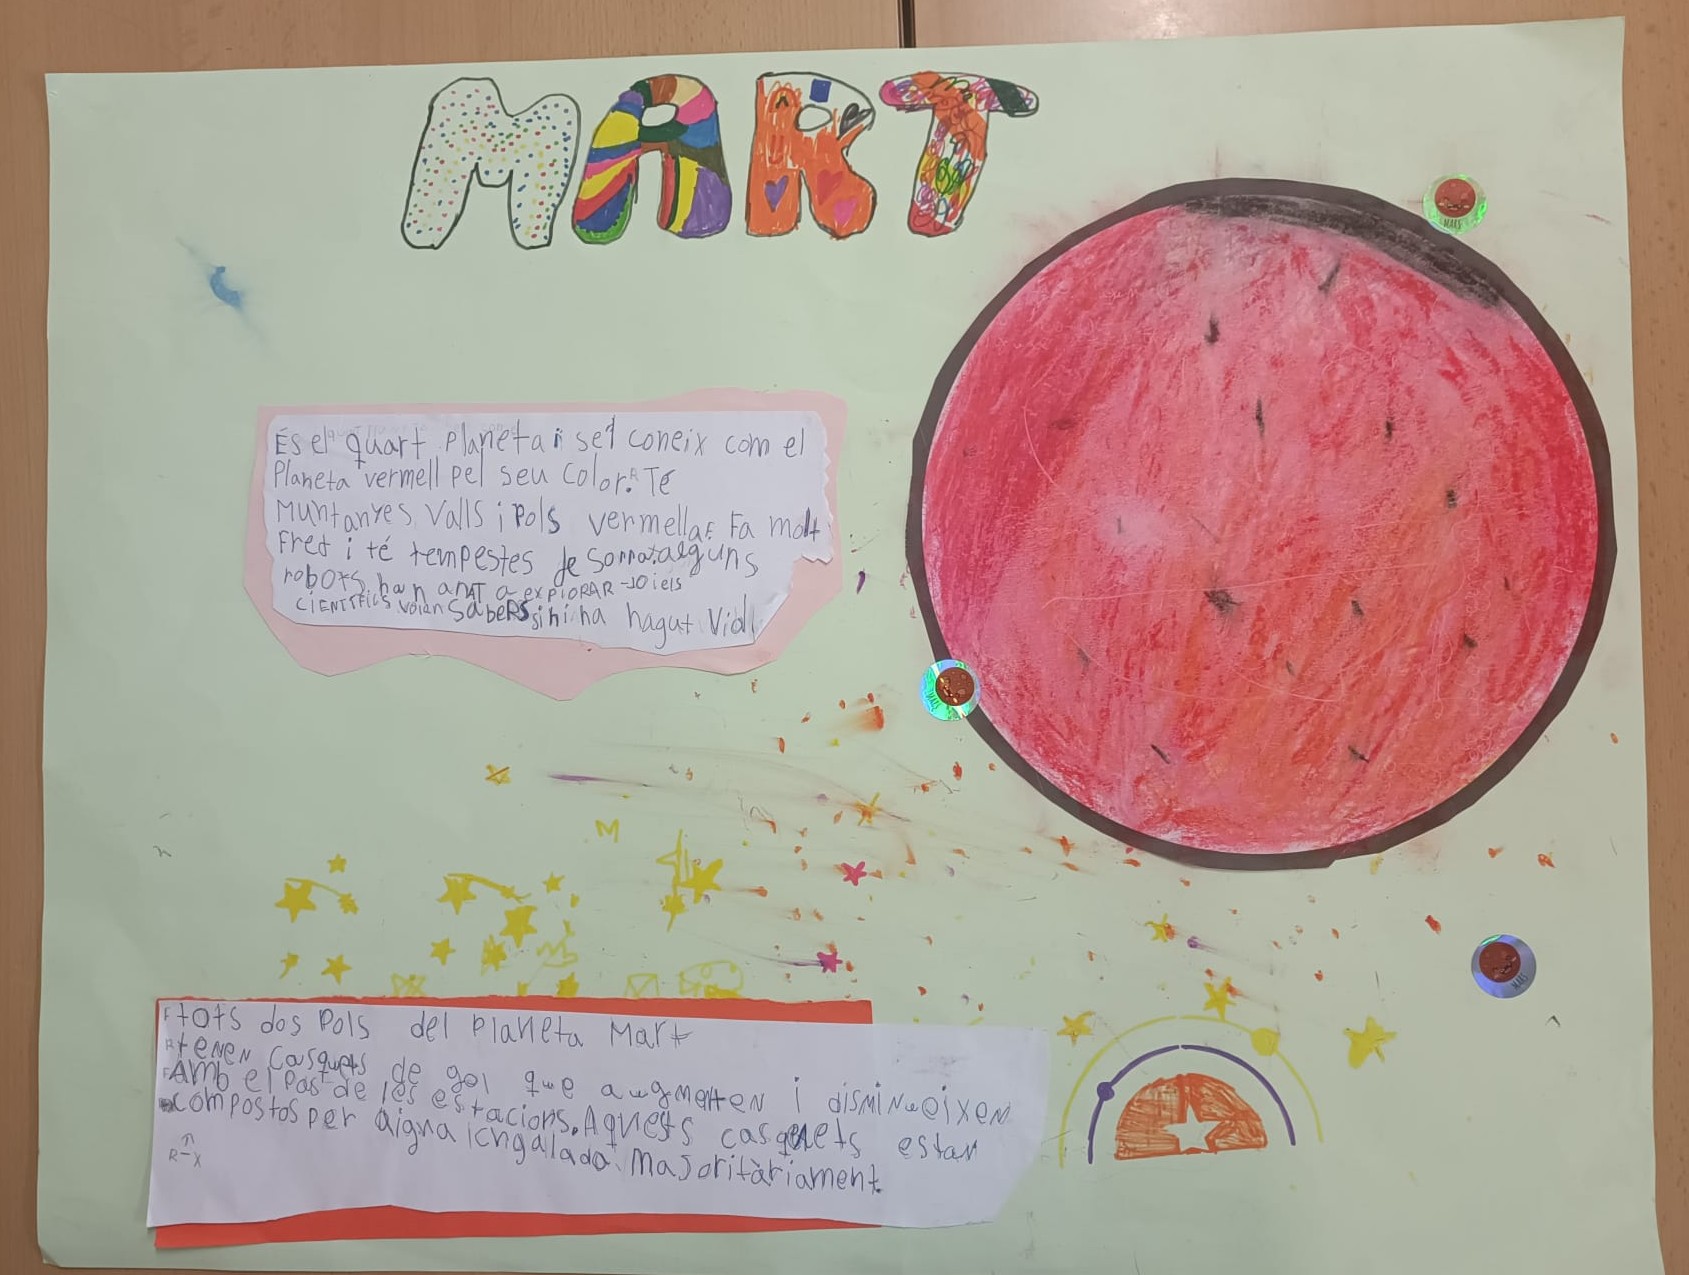 MART
És el quart planeta i se'l coneix com el
Planeta vermell pel seu color. Té
Muntanyes valls i Pols vermella. Fa molt
Fred i té tempestes de sorra. alguns
robots han anat a expLORAR-lo i els
CIENTÍFICS volen saber si hi ha hagut Vida
MARS
MARS
MARS
tots dos Pols del Planeta Mart
tenen casquets de gel que augmenten i disminueixen
AMb el Pas de les estacions. Aquests casquets estan
compostos per aigua congalada Majoritàriament.
R-X